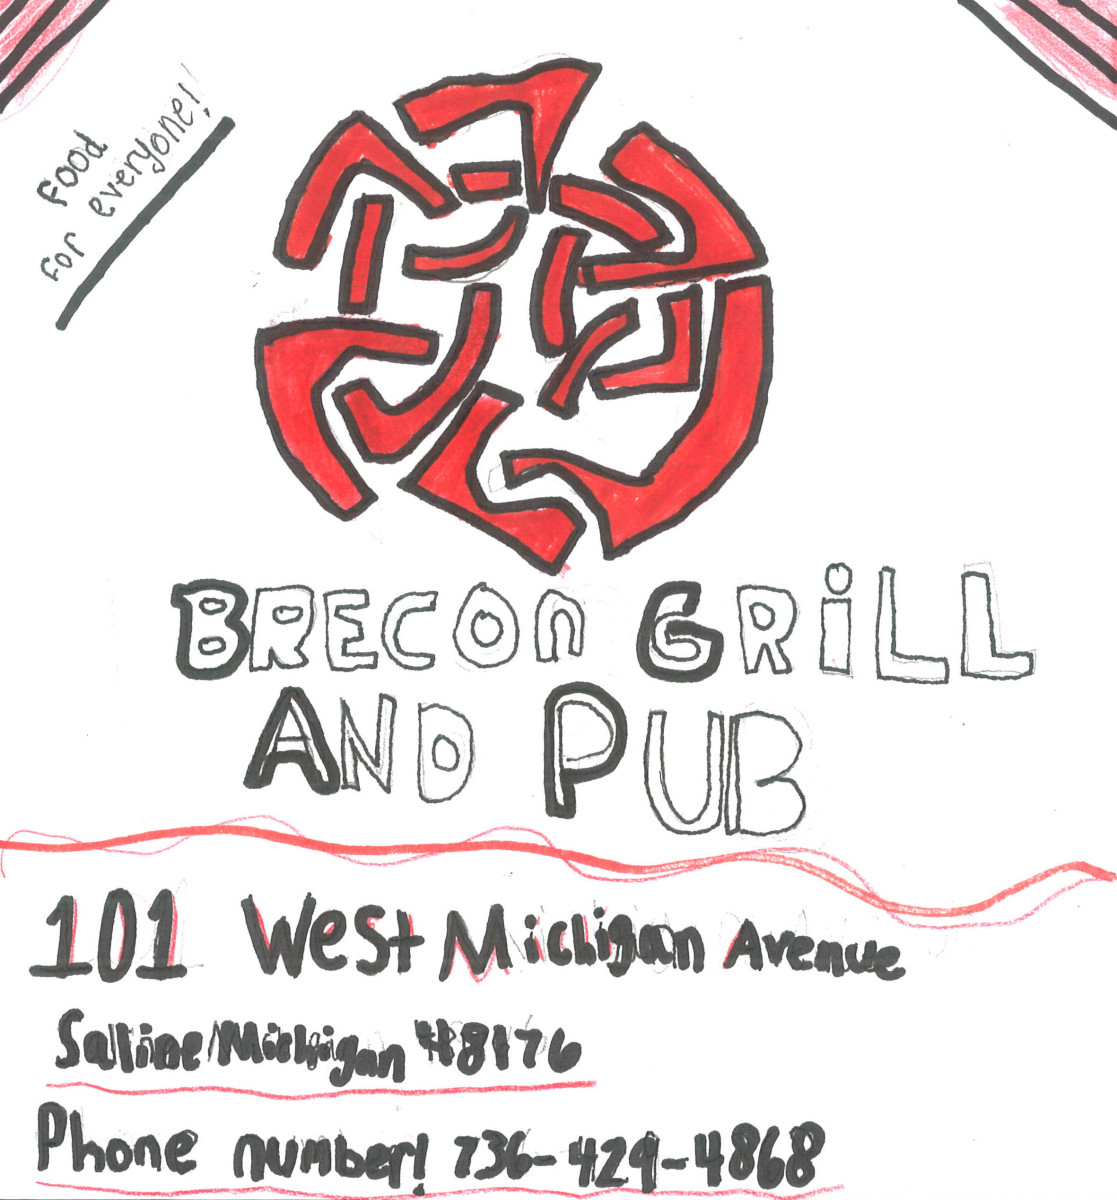 Food
for everyone!
BRECON GRiLL
AND PUB
101 West Michigan Avenue
Saline/Michigan 48176
Phone number! 736-429-4868